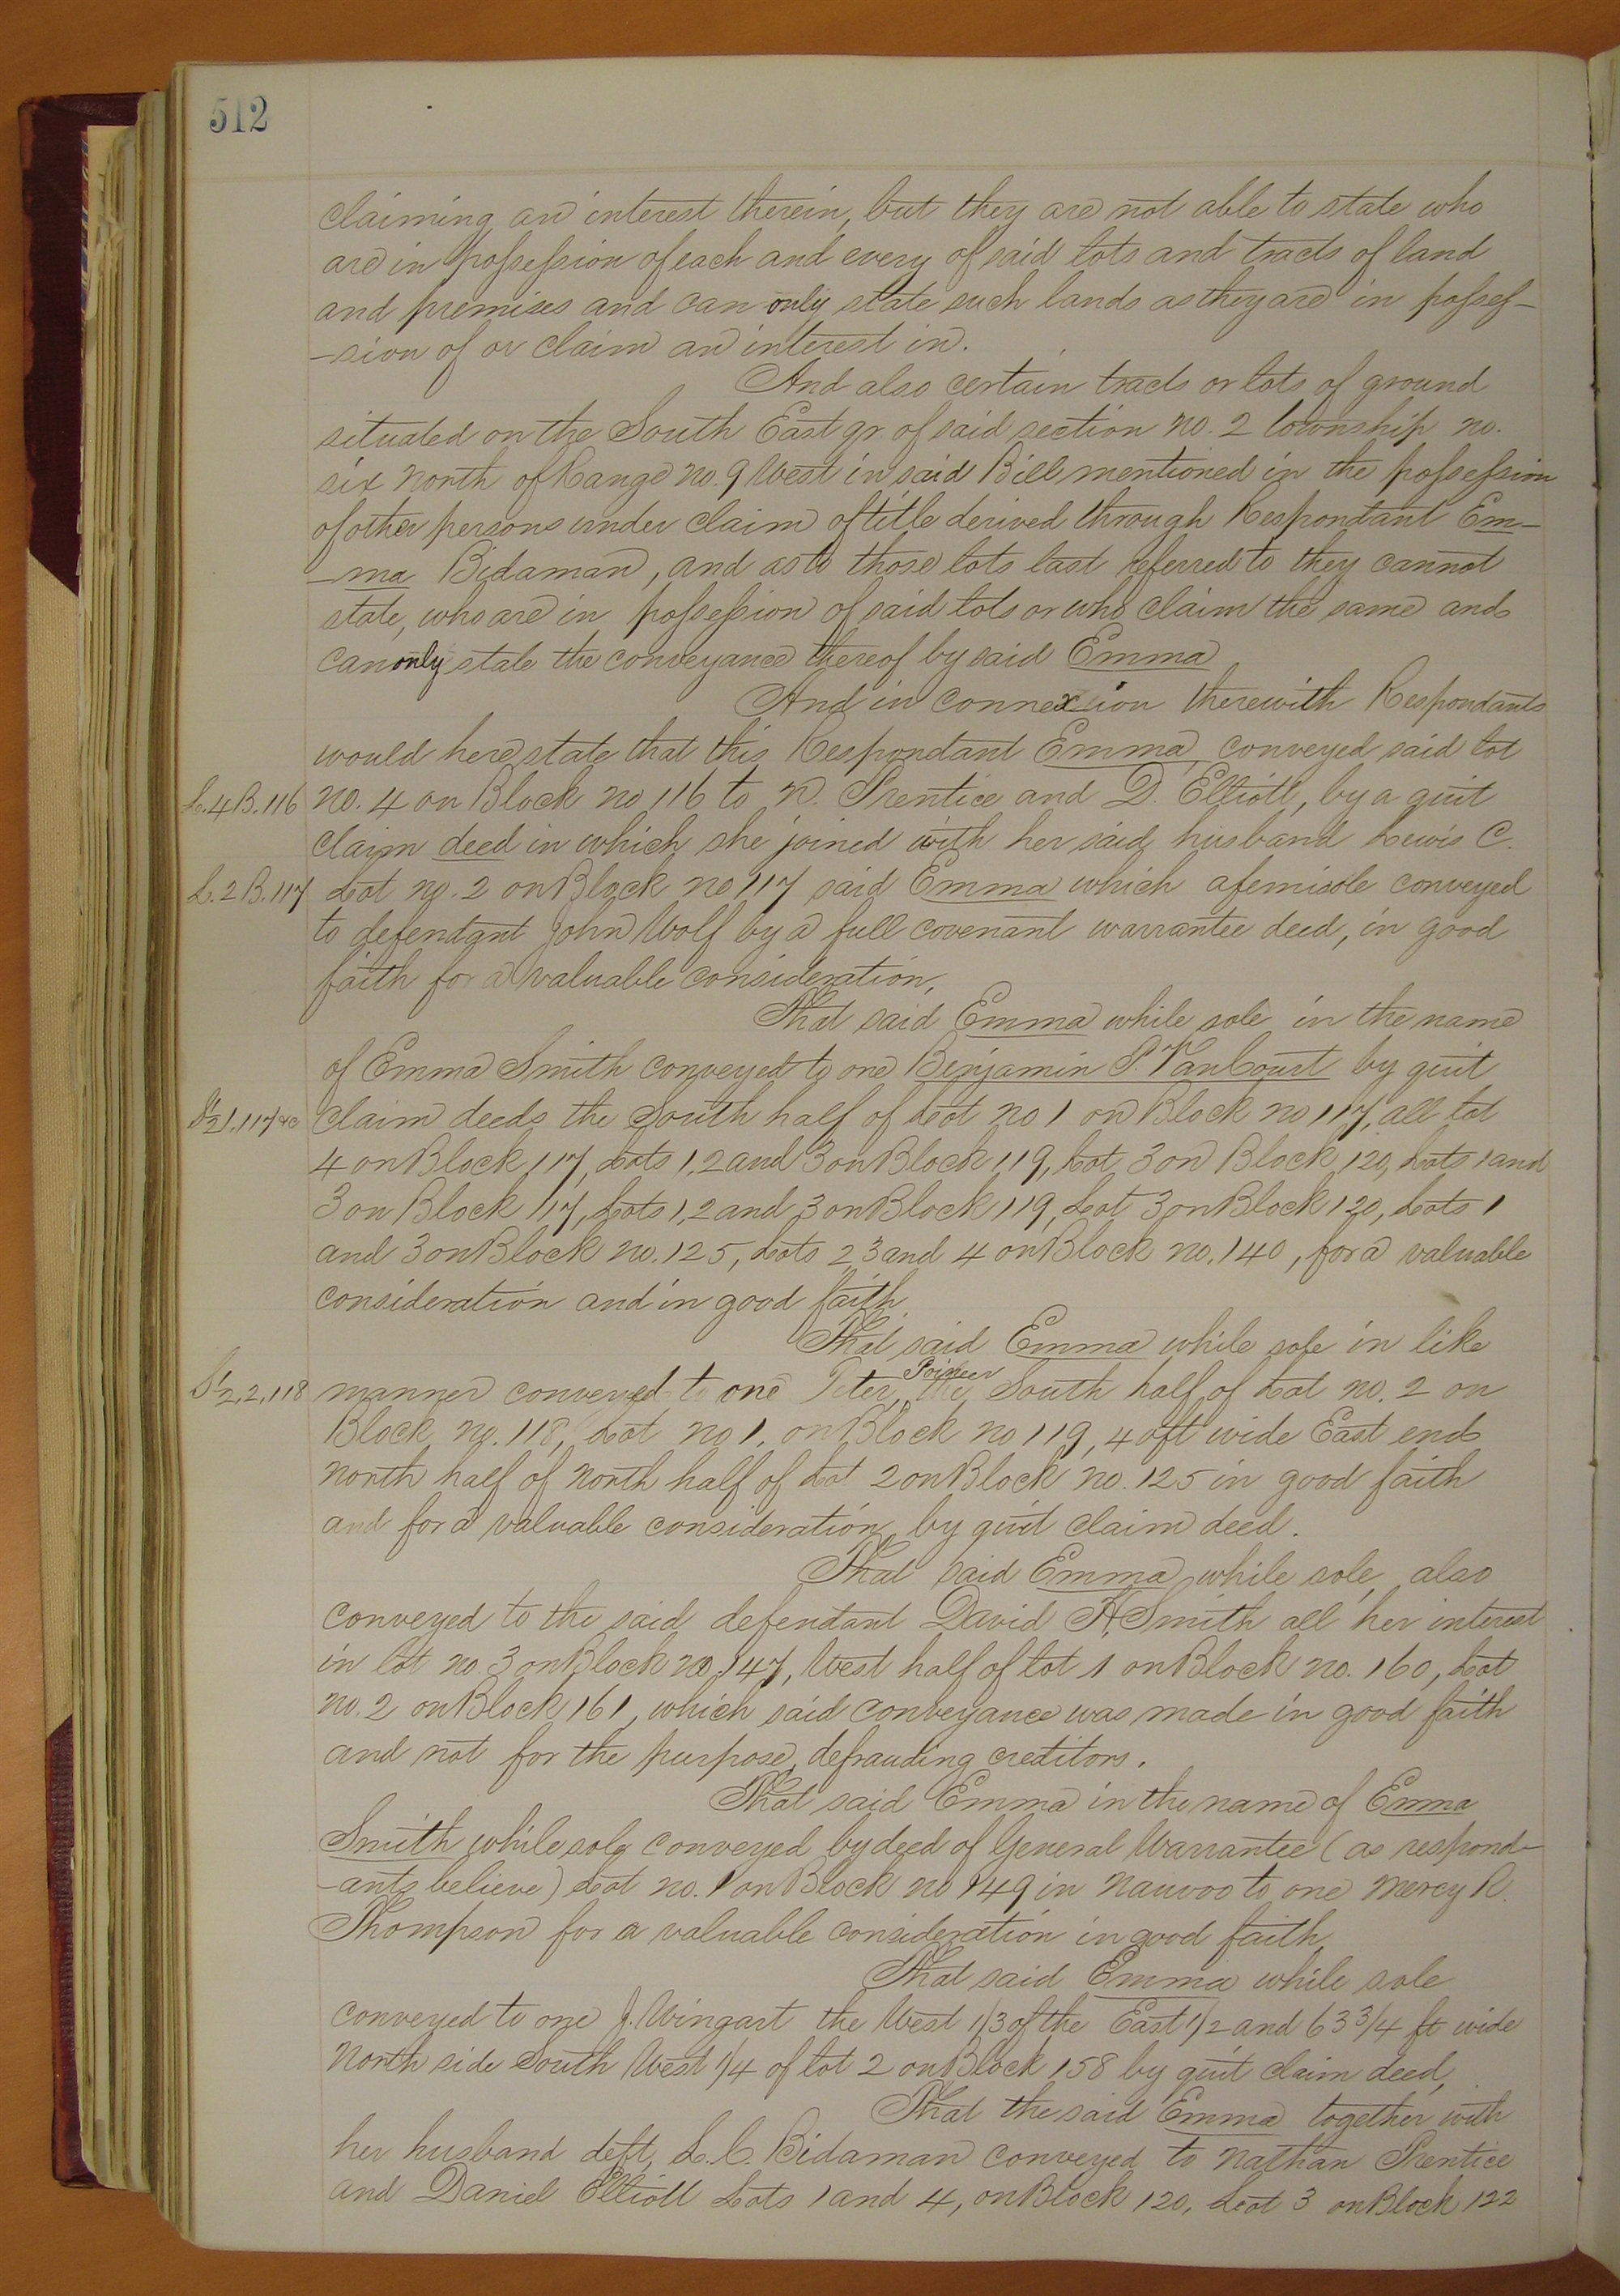 512
claiming an interest therein, but they are not able to state who
are in possession of each and every of said lots and tracts of land
and premises and can only state such lands as they are in posses-
-sion of or claim an interest in.
And also certain tracts or lots of ground
situated on the South East qr. of said section no. 2 township no.
six North of Range no. 9 West in said Bill mentioned in the possession
of other persons under claim of title derived through Respondant Em-
-ma Bidaman, and as to those lots last referred to they cannot
state, who are in possession of said lots or who claim the same and
can only state the conveyance thereof by said Emma
And in connexion therewith Respondants
would here state that this Respondant Emma conveyed said lot
L. 4 B. 116 no. 4 on Block no 116 to N. Prentice and D. Elliott, by a quit
claim deed in which she joined with her said husband Lewis C.
L. 2 B. 117 Lot no. 2 on Block no 117 said Emma which a femisole conveyed
to defendant John Wolf by a full covenant warrantee deed, in good
faith for a valuable consideration,
That said Emma while sole in the name
of Emma Smith conveyed to one Benjamin P. VanCourt by quit
S½ 1. 117 &c claim deeds the South half of Lot no 1 on Block no 117, all lot
4 on Block 117, Lots 1, 2 and 3 on Block 119, Lot 3 on Block 120, Lots 1 and
3 on Block 117, Lots 1, 2 and 3 on Block 119, Lot 3 on Block 120, Lots 1
and 3 on Block no. 125, Lots 2, 3 and 4 on Block no. 140, for a valuable
consideration and in good faith,
That said Emma while sole in like
S½, 2, 118 manner conveyed to one Peter Poineer the South half of Lot no. 2 on
Block no. 118, Lot no 1. on Block no 119, 40 ft wide East end
North half of North half of Lot 2 on Block no. 125 in good faith
and for a valuable consideration by quit claim deed.
That said Emma while sole, also
conveyed to the said defendant David H. Smith all her interest
in lot no. 3 on Block no. 147, West half of lot 1 on Block no. 160, Lot
no. 2 on Block 161, which said conveyance was made in good faith
and not for the purpose, defrauding creditors.
That said Emma in the name of Emma
Smith while sole conveyed by deed of General Warrantee (as respond-
-ants believe) Lot no. 1 on Block no 149 in Nauvoo to one Mercy R.
Thompson for a valuable consideration in good faith,
That said Emma while sole
conveyed to one J. Wingart the West 1/3 of the East 1/2 and 63 3/4 ft wide
North side South West 1/4 of lot 2 on Block 158 by quit claim deed,
That the said Emma together with
her husband deft, L. C. Bidaman conveyed to Nathan Prentice
and Daniel Elliott Lots 1 and 4, on Block 120, Lot 3 on Block 122